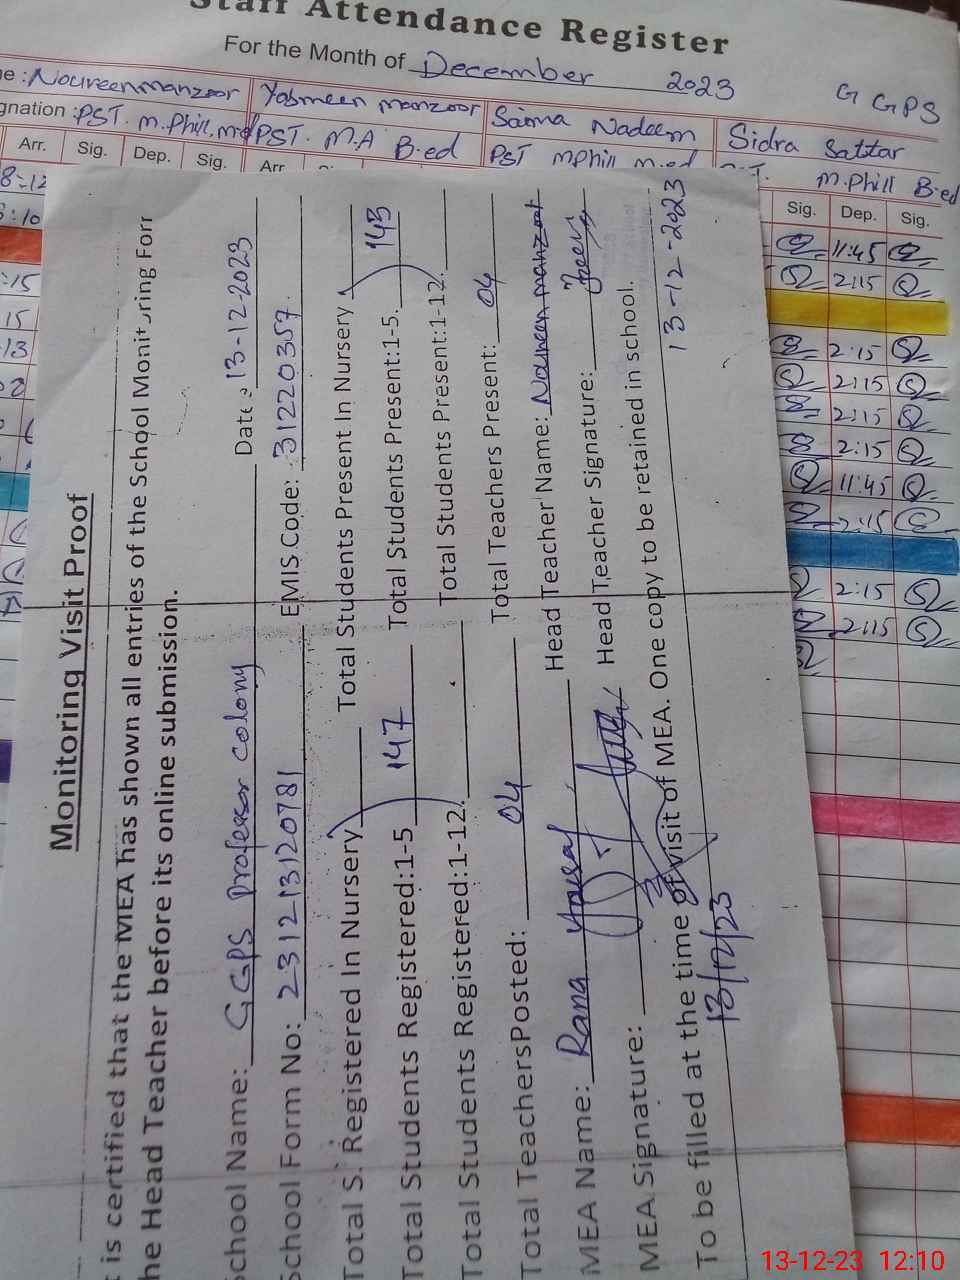 Staff Attendance Register
For the Month of December 2023
G GPS
Noureen manzoor Yasmeen manzoor Saima Nadeem Sidra Sattar
gnation : PST. M.Phill. PST. M.A B.ed PST Mphill M.ed M.Phill B.ed
Arr. Sig. Dep. Sig. Arr Sig. Dep. Sig.
11:45
2:15
2:15
2:15
2:15
2:15
11:45
2:15
2:15
2:15
Monitoring Visit Proof
t is certified that the MEA has shown all entries of the School Monitoring Forr
he Head Teacher before its online submission.
School Name: GGPS Professor Colony Date: 13-12-2023
School Form No: 231213120781 EMIS Code: 31220357
Total S. Registered In Nursery Total Students Present In Nursery
Total Students Registered:1-5 147 Total Students Present:1-5. 145
Total Students Registered:1-12. Total Students Present:1-12.
Total TeachersPosted: 04 Total Teachers Present: 04
MEA Name: Rana Yousaf Head Teacher Name: Noureen manzoor
MEA Signature: Head Teacher Signature:
To be filled at the time of visit of MEA. One copy to be retained in school.
13/12/23 13-12-2023
13-12-23 12:10